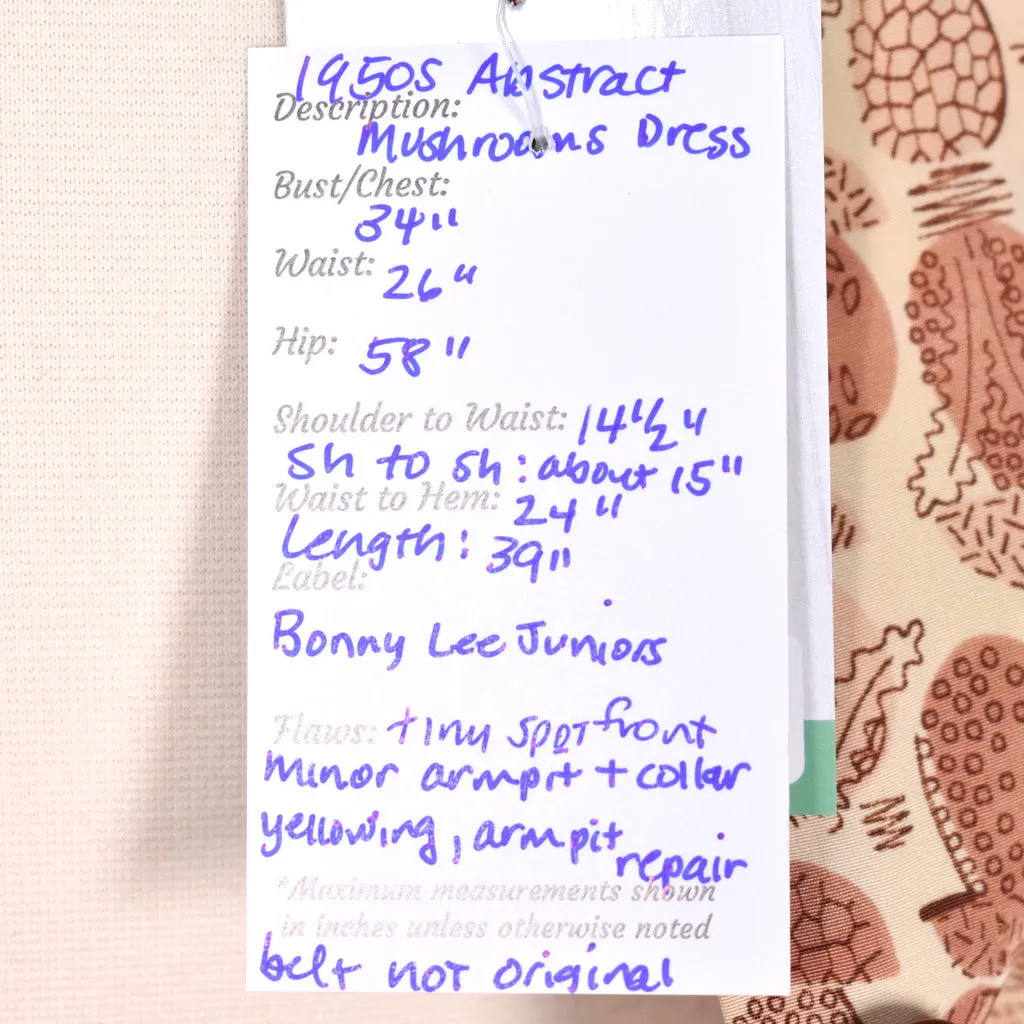 1950s Abstract
Description:
Mushrooms Dress
Bust/Chest:
34"
Waist: 26"
Hip: 58"
Shoulder to Waist: 14 1/2"
Sh to Sh: about 15"
Waist to Hem: 24"
Length: 39"
Label:
Bonny Lee Juniors
Flaws: tiny spot front
minor armpit + collar
yellowing, armpit repair
*Maximum measurements shown
in inches unless otherwise noted
belt not original